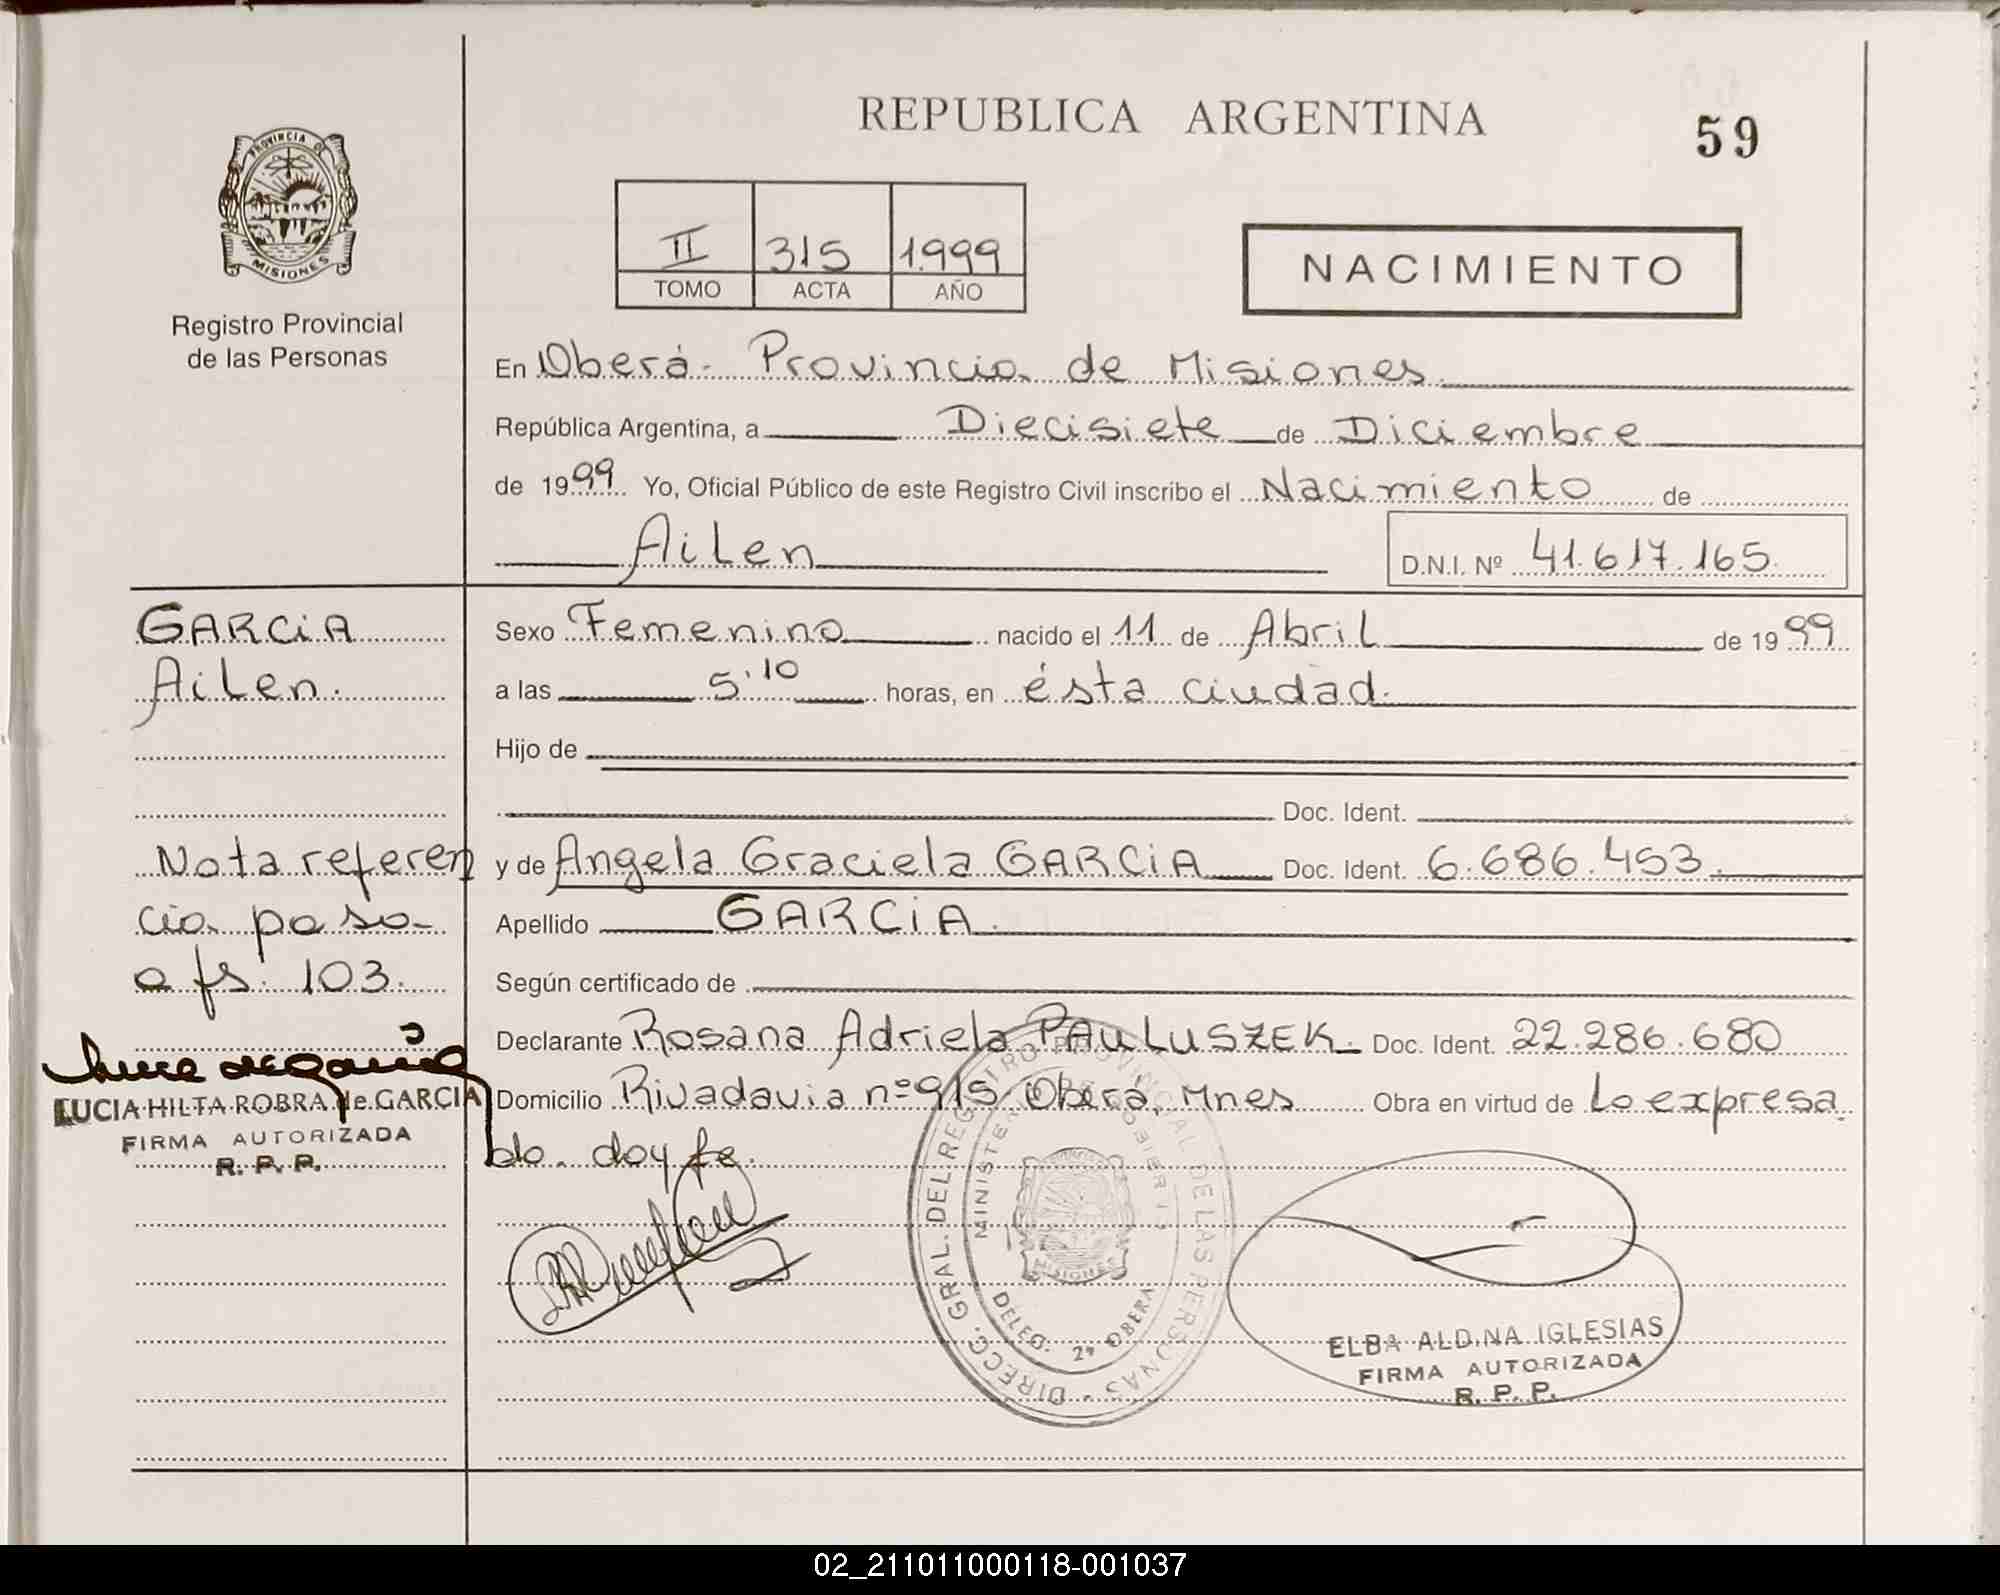 REPUBLICA ARGENTINA
59
PROVINCIA DE
MISIONES
Registro Provincial
de las Personas
II 315 1.999
TOMO ACTA AÑO
NACIMIENTO
En Oberá - Provincia de Misiones.
República Argentina, a Diecisiete de Diciembre
de 1999 Yo, Oficial Público de este Registro Civil inscribo el Nacimiento de
Ailen
D.N.I. Nº 41.617.165.
GARCIA
Ailen.
Sexo Femenino nacido el 11 de Abril de 1999
a las 5'10 horas, en ésta ciudad.
Hijo de
Doc. Ident.
y de Angela Graciela GARCIA Doc. Ident. 6.686.453.
Apellido GARCIA.
Según certificado de
Declarante Rosana Adriela PAULUSZEK. Doc. Ident. 22.286.680
Domicilio Rivadavia nº 915, Oberá, Mnes Obra en virtud de Lo expresa
do. doy fe.
Nota referen
cia paso
a fs. 103.
LUCIA HILTA ROBRA de GARCIA
FIRMA AUTORIZADA
R. P. P.
DIRECC. GRAL. DEL REGISTRO PROVINCIAL DE LAS PERSONAS
MINISTERIO DE GOBIERNO
MISIONES
DELEG. 2ª OBERA
ELBA ALDINA IGLESIAS
FIRMA AUTORIZADA
R. P. P.
02_211011000118-001037